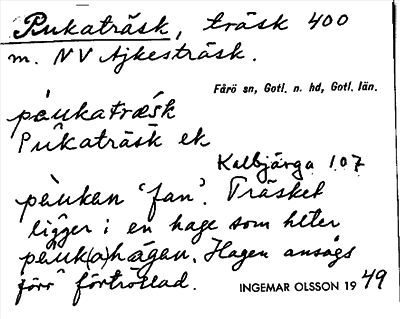 Pukaträsk, träsk 400
m. NV Ajkesträsk.
Fårö sn, Gotl. n. hd, Gotl. län.
pèukatræsk
Pukaträsk ek
Kalbjärga 107
pèukan 'fan'. Träsket
ligger i en hage som heter
pèuk(a)hàgan. Hagen ansågs
förr förtrollad.
INGEMAR OLSSON 1949